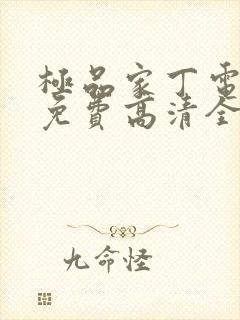 極品家丁電
免費高清全
九命怪